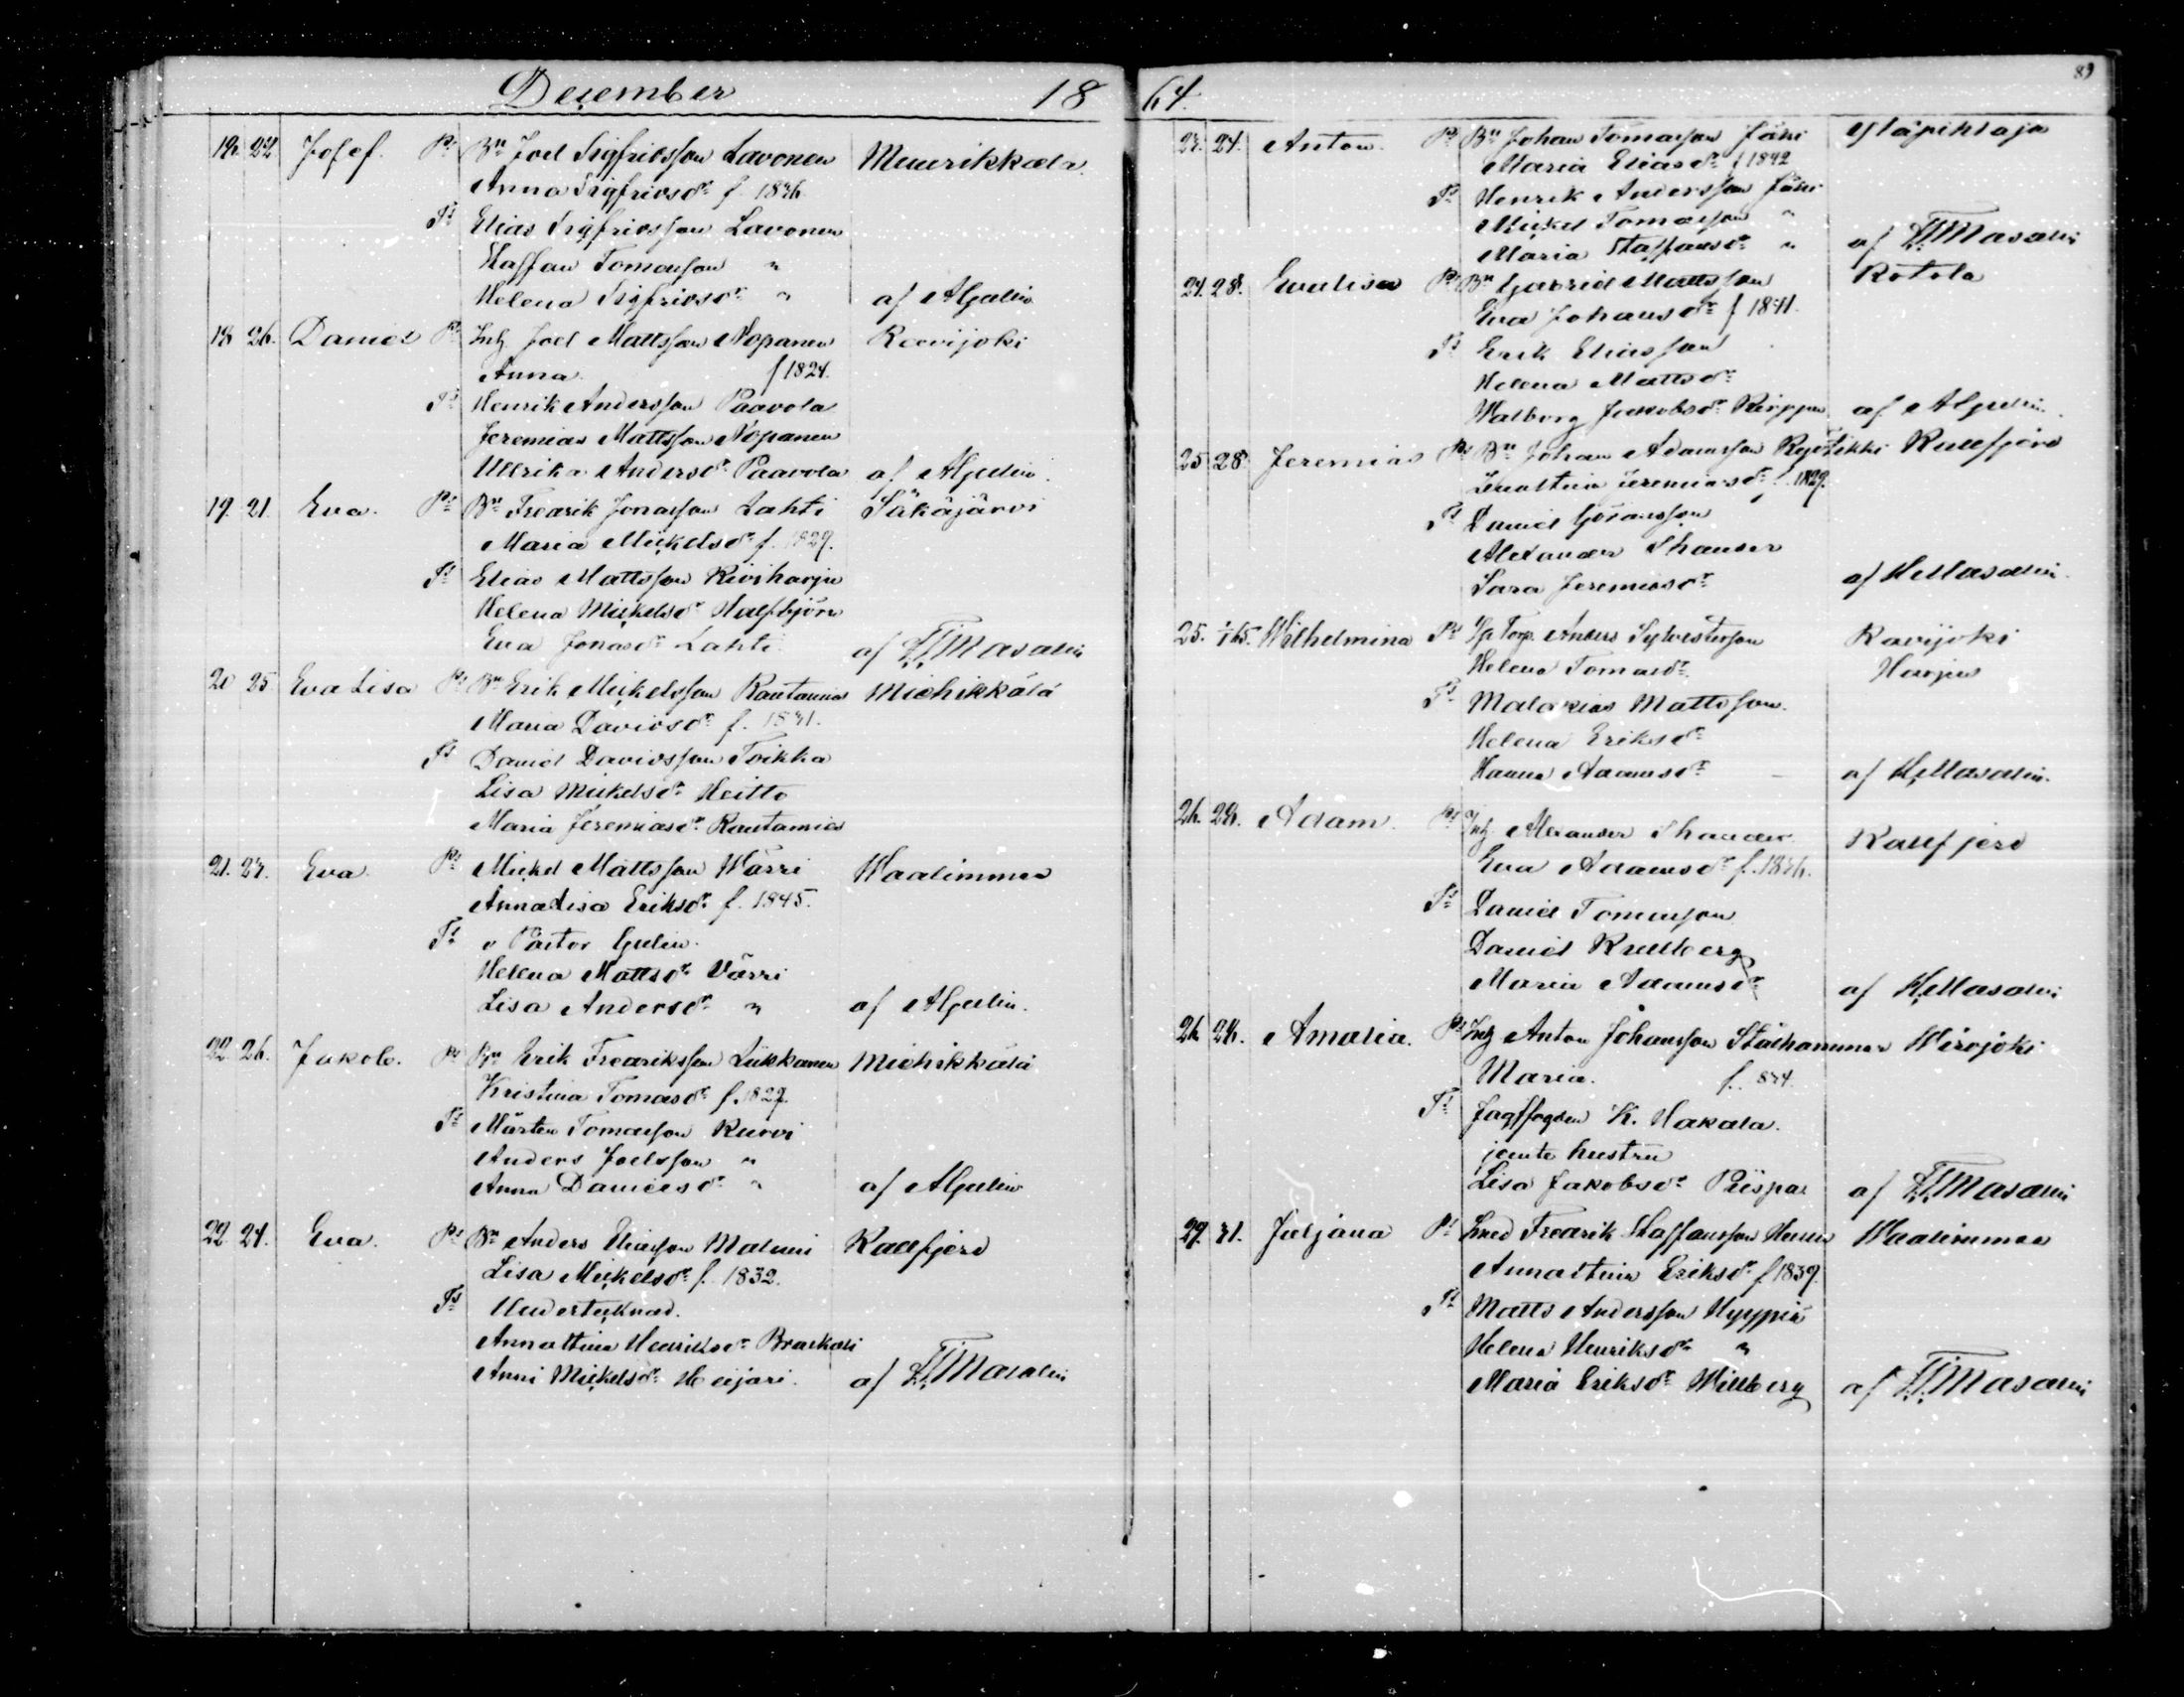 December 1864.
89
18. 22 Josef. Ps Bn Joel Sigfridsson Lavonen Muurikkala
Anna Sigfridsdr f. 1836
Ts Elias Sigfridsson Lavonen
Staffan Tomasson "
Helena Sigfridsdr " af AGulin
18 26. Daniel Ps Inh Joel Mattsson Nopanen Ravijoki
Anna f 1824.
Ts Henrik Andersson Paavola
Jeremias Mattsson Nopanen
Ullrika Andersdr Paavola af AGulin.
19. 21. Eva. Ps Bn Fredrik Jonasson Lahti Säkäjärvi
Maria Mickelsdr f. 1829.
Ts Elias Mattsson Kiviharju
Helena Mickelsdr Kalfbjörn
Eva Jonasdr Lahti af Masalin
20 25 Eva Lisa Ps Bn Erik Mickelsson Rautamies Miehikkälä
Maria Davidsdr f. 1831.
Ts Daniel Davidsson Toikka
Lisa Mickelsdr Heitto
Maria Jeremiasdr Rautamies
21. 23. Eva Ps Mickel Mattsson Wärri Waalimmaa
Anna Lisa Eriksdr f. 1845.
Ts v Pastor Gulin.
Helena Mattsdr Värri
Lisa Andersdr " af AGulin.
22. 26. Jakob. Ps Bn Erik Fredriksson Liikkanen Miehikkälä
Kristina Tomasdr f. 1829.
Ts Mårten Tomasson Kurvi
Anders Joelsson "
Anna Danielsdr " af AGulin
22 24. Eva. Ps Bn Anders Eliasson Malmi Kallfjerd
Lisa Mickelsdr f. 1832.
Ts Undertecknad.
Annastina Henriksdr
Anni Mickelsdr Heijari. af Masalin
23. 24. Anton. Ps Bn Johan Tomasson Jäki Yläpihlaja
Maria Eliasdr f 1842
Ts Henrik Andersson Jäki
Mickel Tomasson "
Maria Staffansdr " af Masalin
24. 28. Evalisa Ps Bn Gabriel Mattsson Kotola
Eva Johansdr f 1841.
Ts Erik Eliasson
Helena Mattsdr
Walborg Jakobsdr af AGulin.
25 28. Jeremias Ps Bn Johan Adamsson Kallfjerd
Jeremiasdr f. 1829.
Ts Daniel Göransson
Alexander Thauder
Sara Jeremiasdr af HMasalin.
25. 1/1 65. Wilhelmina Ps Torp. Anders Sylvestersson Ravijoki
Helena Tomasdr Harju
Ts Malakias Mattsson.
Helena Eriksdr
Hanna Adamsdr af HMasalin.
26. 28. Adam. Ps Inh Alexander Thauder Kallfjerd
Eva Adamsdr f. 1836.
Ts Daniel Tomasson
Daniel Kullberg
Maria Adamsdr af HMasalin
26. 28. Amalia. Ps Inh Anton Johansson Stålhammar Wirojoki
Maria. f. 834.
Ts Jagtfogden K. Hakala.
jemte hustru
Lisa Jakobsdr Piispa af Masalin
29. 31. Juljana Ps Smed Fredrik Staffansson Waalimmaa
Annastina Eriksdr f 1839
Ts Matts Andersson Hyyppiä
Helena Henriksdr "
Maria Eriksdr Willberg af Masalin